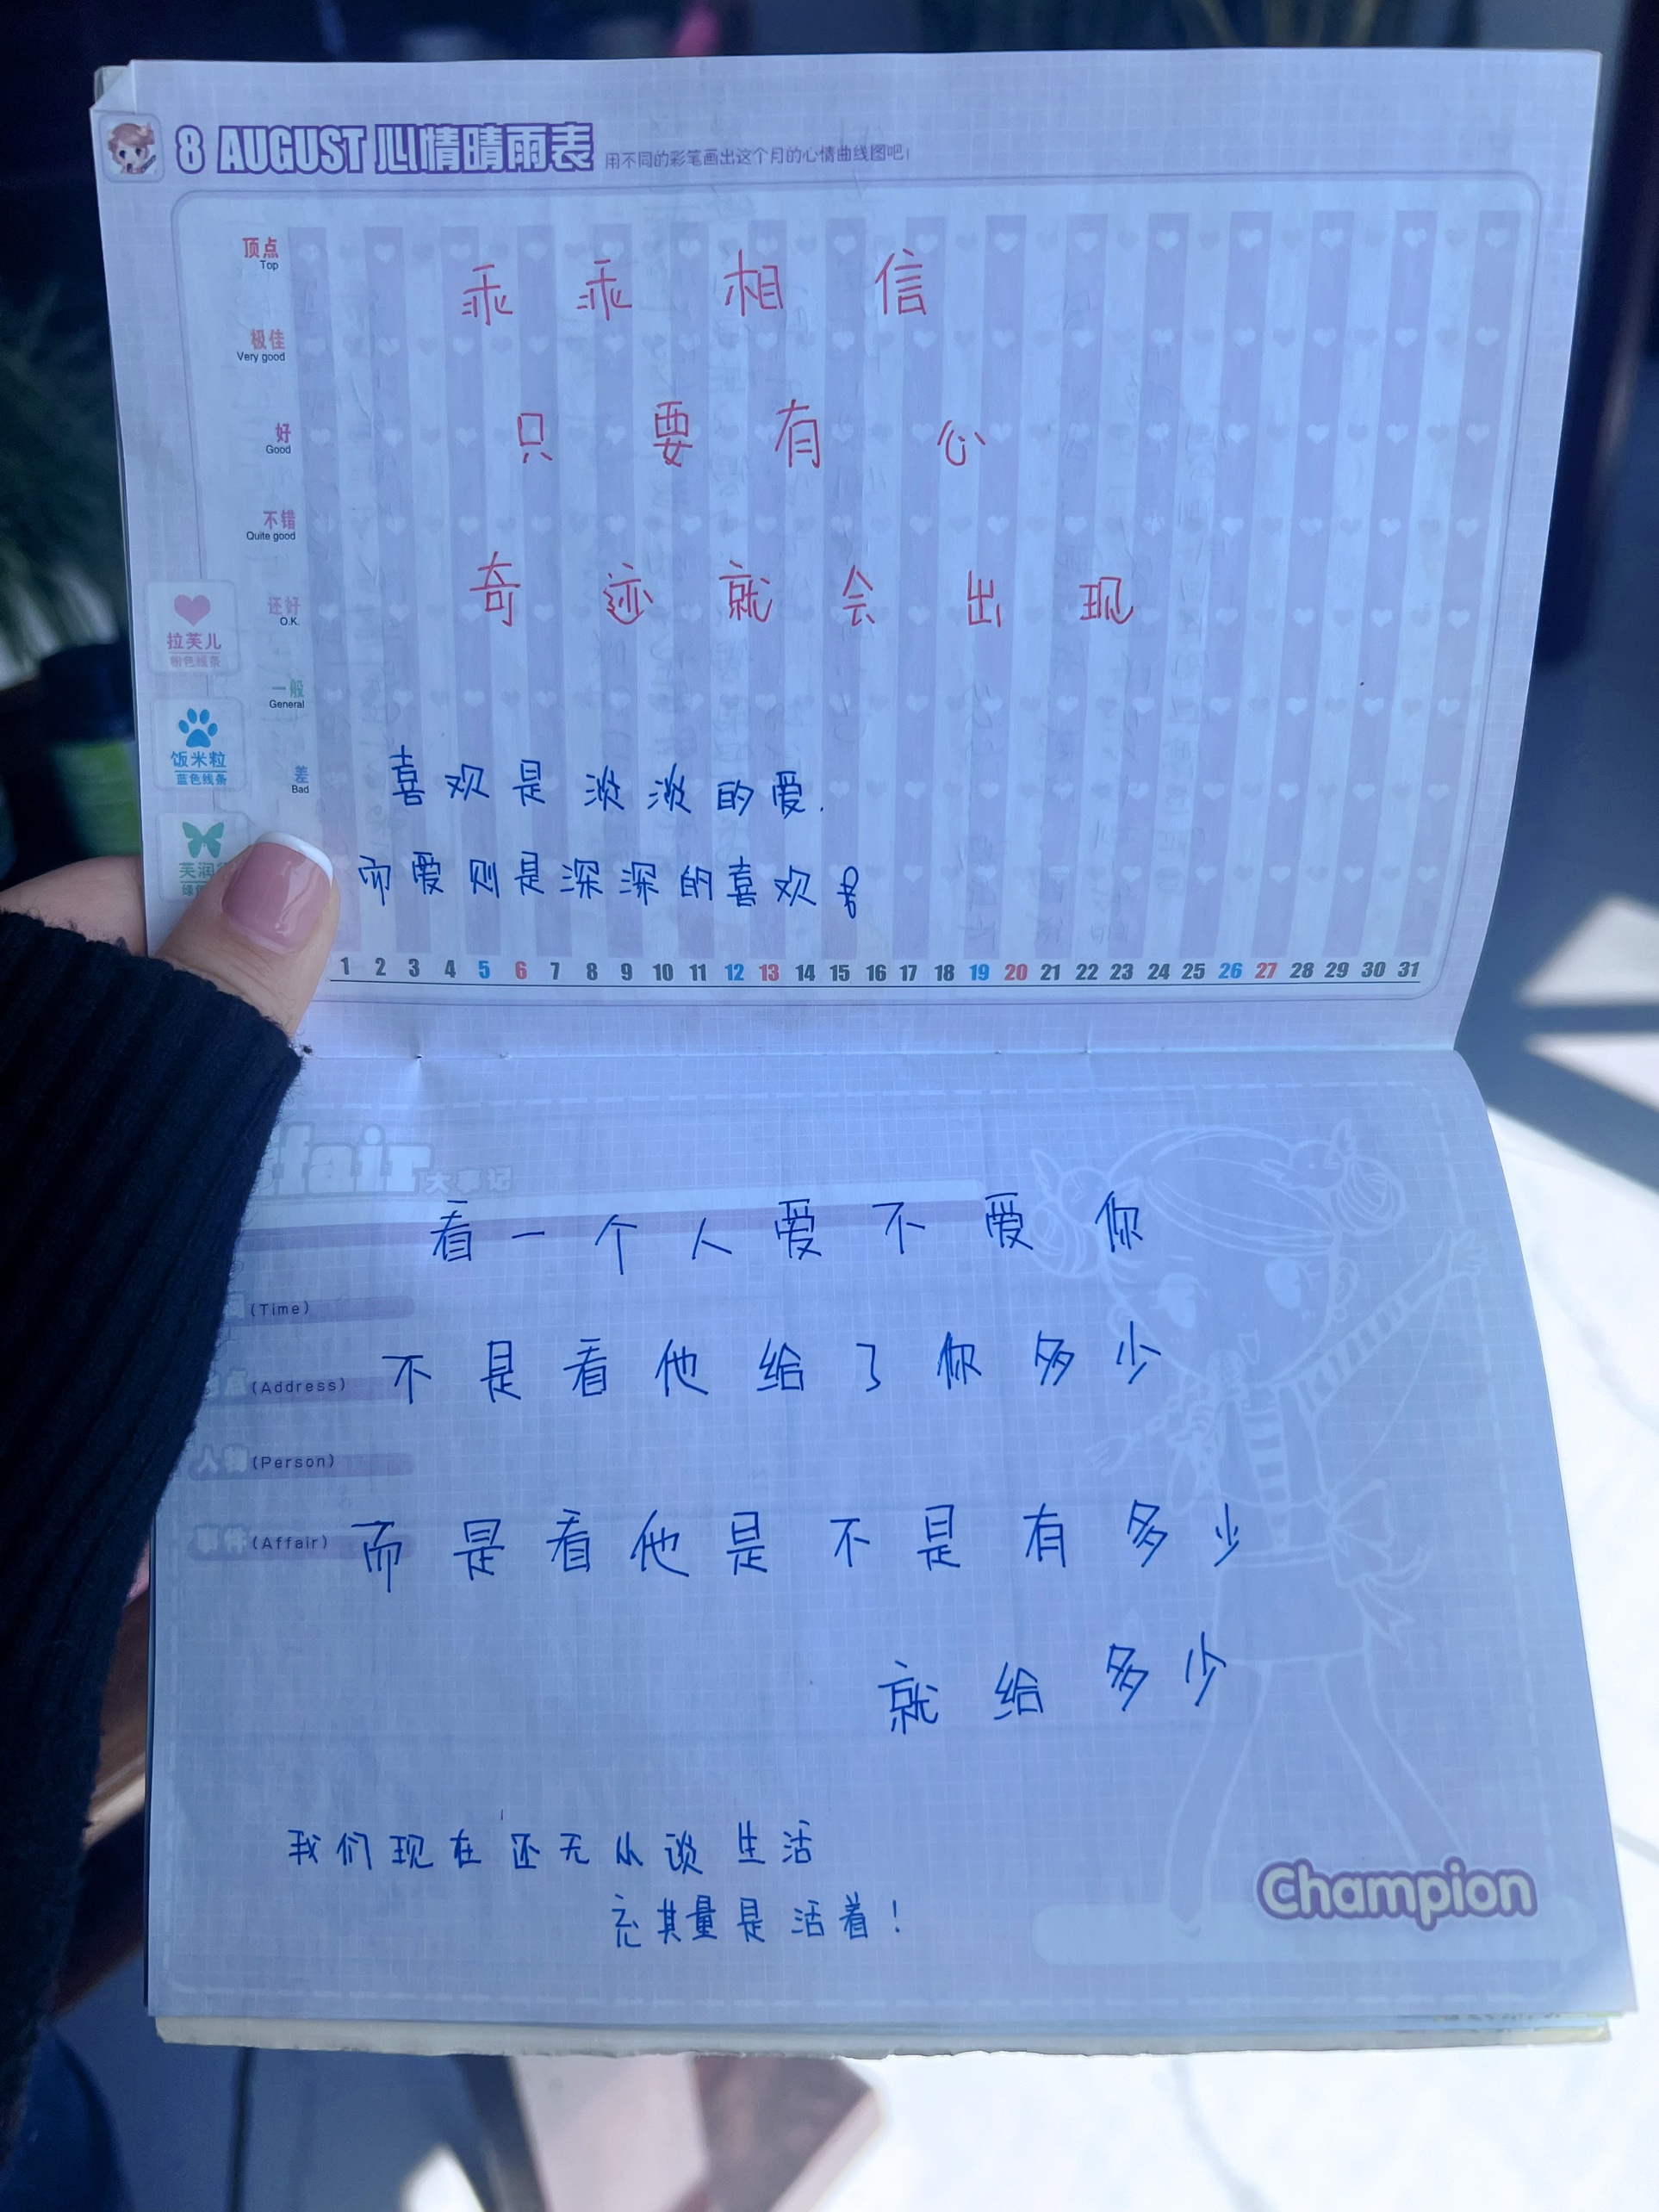 8 AUGUST 心情晴雨表 用不同的彩笔画出这个月的心情曲线图吧!
顶点
Top
乖乖相信
极佳
Very good
好
Good
只要有心
不错
Quite good
还好
O.K.
奇迹就会出现
拉芙儿
粉色线条
一般
General
饭米粒
蓝色线条
差
Bad
喜欢是淡淡的爱.
芙润
而爱则是深深的喜欢
1 2 3 4 5 6 7 8 9 10 11 12 13 14 15 16 17 18 19 20 21 22 23 24 25 26 27 28 29 30 31
ffair 大事记
看一个人爱不爱你
(Time)
不是看他给了你多少
点 (Address)
人物 (Person)
而是看他是不是有多少
事件 (Affair)
就给多少
我们现在还无从谈生活
充其量是活着!
Champion